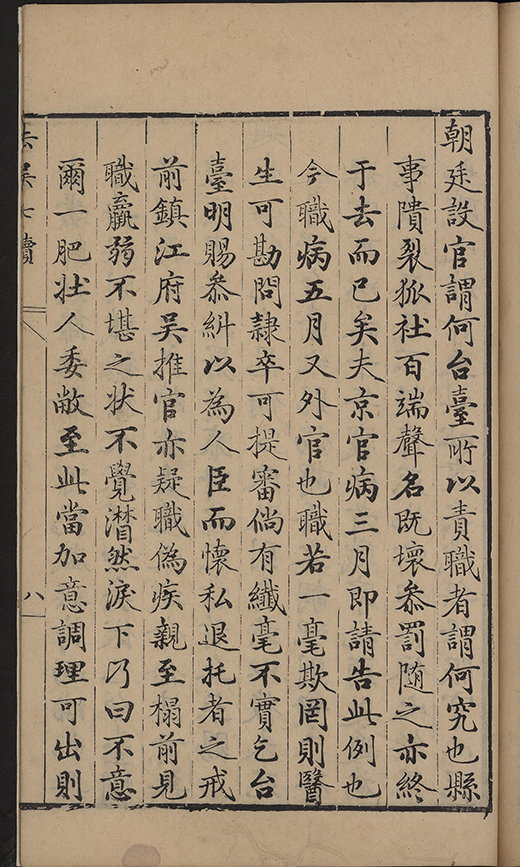 朝廷設官謂何台臺所以責職者謂何究也縣
事隤裂狐社百端聲名旣壞叅罰随之亦終
于去而已矣夫京官病三月即請告此例也
今職病五月又外官也職若一毫欺罔則醫
生可勘問隷卒可提審倘有纖毫不實乞台
臺明賜叅糾以為人臣而懷私退托者之戒
前鎮江府吳推官亦疑職偽疾親至榻前見
職羸弱不堪之状不覺潸然淚下乃曰不意
爾一肥壮人委敝至此當加意調理可出則
去吳七牘
八